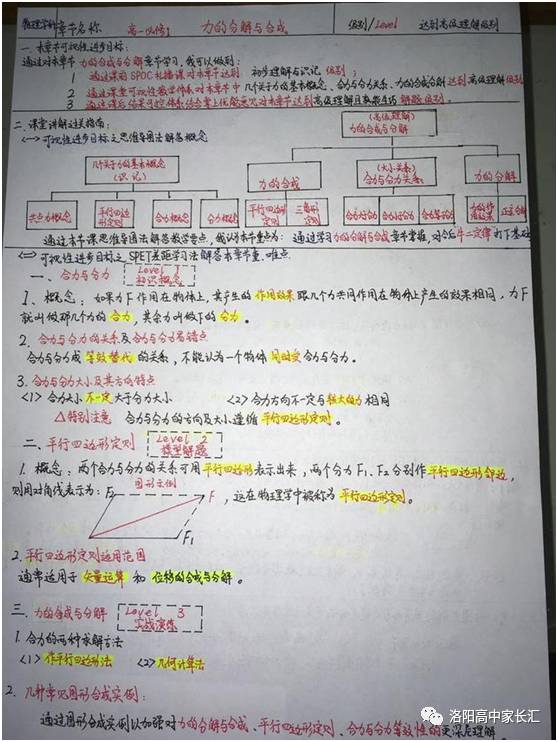 物理学科 章节名称 高一必修1 力的分解与合成 级别/Level 达到高级理解级别
一. 本章节可视性进步目标:
通过对本章节 力的合成与分解 章节学习, 我可以做到:
1 通过课前SPOC积极课对本章节达到 初步理解与识记 级别;
2 通过课堂可视性教学体系对本章节中 几个关于力的基本概念、合力与分力关系、力的合成分解 达到高级理解级别
3 高级理解且
级别。
二. 课堂讲解过关指南:
<一> 可视性进步目标之思维导图法解答概念
(高级理解)
力的合成与分解
几个关于力的基本概念
(识记)
力的合成
(大小关系)
合力与分力关系
力的分解
共点力概念
平行四边形定则
合力概念
分力概念
平行四边形定则
三角形定则
正交分解
通过本节课思维导图法解答教学重点, 我认为本节重点为: 通过学习力的分解与合成章节掌握, 对今后牛二定律打下基础
<二> 可视性进步目标之SPET差距学习法解答本章节重、难点
一、合力与分力 Level 1
知识概念
1、概念: 如果力F作用在物体上, 其产生的作用效果跟几个力共同作用在物体上产生的效果相同, 力F
就叫做那几个力的合力, 其余力叫做F的分力。
2. 合力与分力的关系及合力与分力易错点
合力与分力成等效替代的关系, 不能认为一个物体同时受合力与分力。
3. 合力与分力大小及其方向特点
<1> 合力大小不一定大于分力大小 <2> 合力方向不一定与较大的力相同
△特别注意 合力与分力的方向及大小遵循平行四边形定则。
二、平行四边形定则 Level 2
模型解题
1. 概念: 两个合力与分力的关系可用平行四边形表示出来, 两个分力F₁、F₂分别作平行四边形邻边,
图形示例
则用对角线表示为: F₂ F , 这在物理学中被称为平行四边形定则。
F₁
2. 平行四边形定则运用范围
通常适用于 矢量运算 和 位移的合成与分解。
三、力的合成与分解 Level 3
实战演练
1. 合力的两种求解方法
<1> 作平行四边形法 <2> 几何计算法
2. 几种常见图形合成实例:
通过图形合成实例以加强对力的分解与合成、平行四边形定则、合力与分力等效性的更深层理解。
洛阳高中家长汇